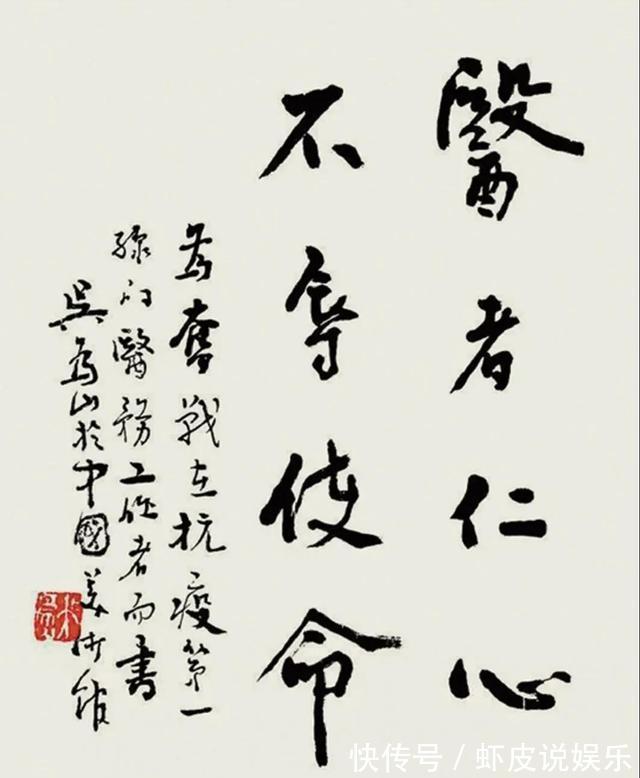 醫者仁心
不辱使命
為奮戰在抗疫第一
線的醫務工作者而書
吳為山於中國美術館
快传号 / 虾皮说娱乐